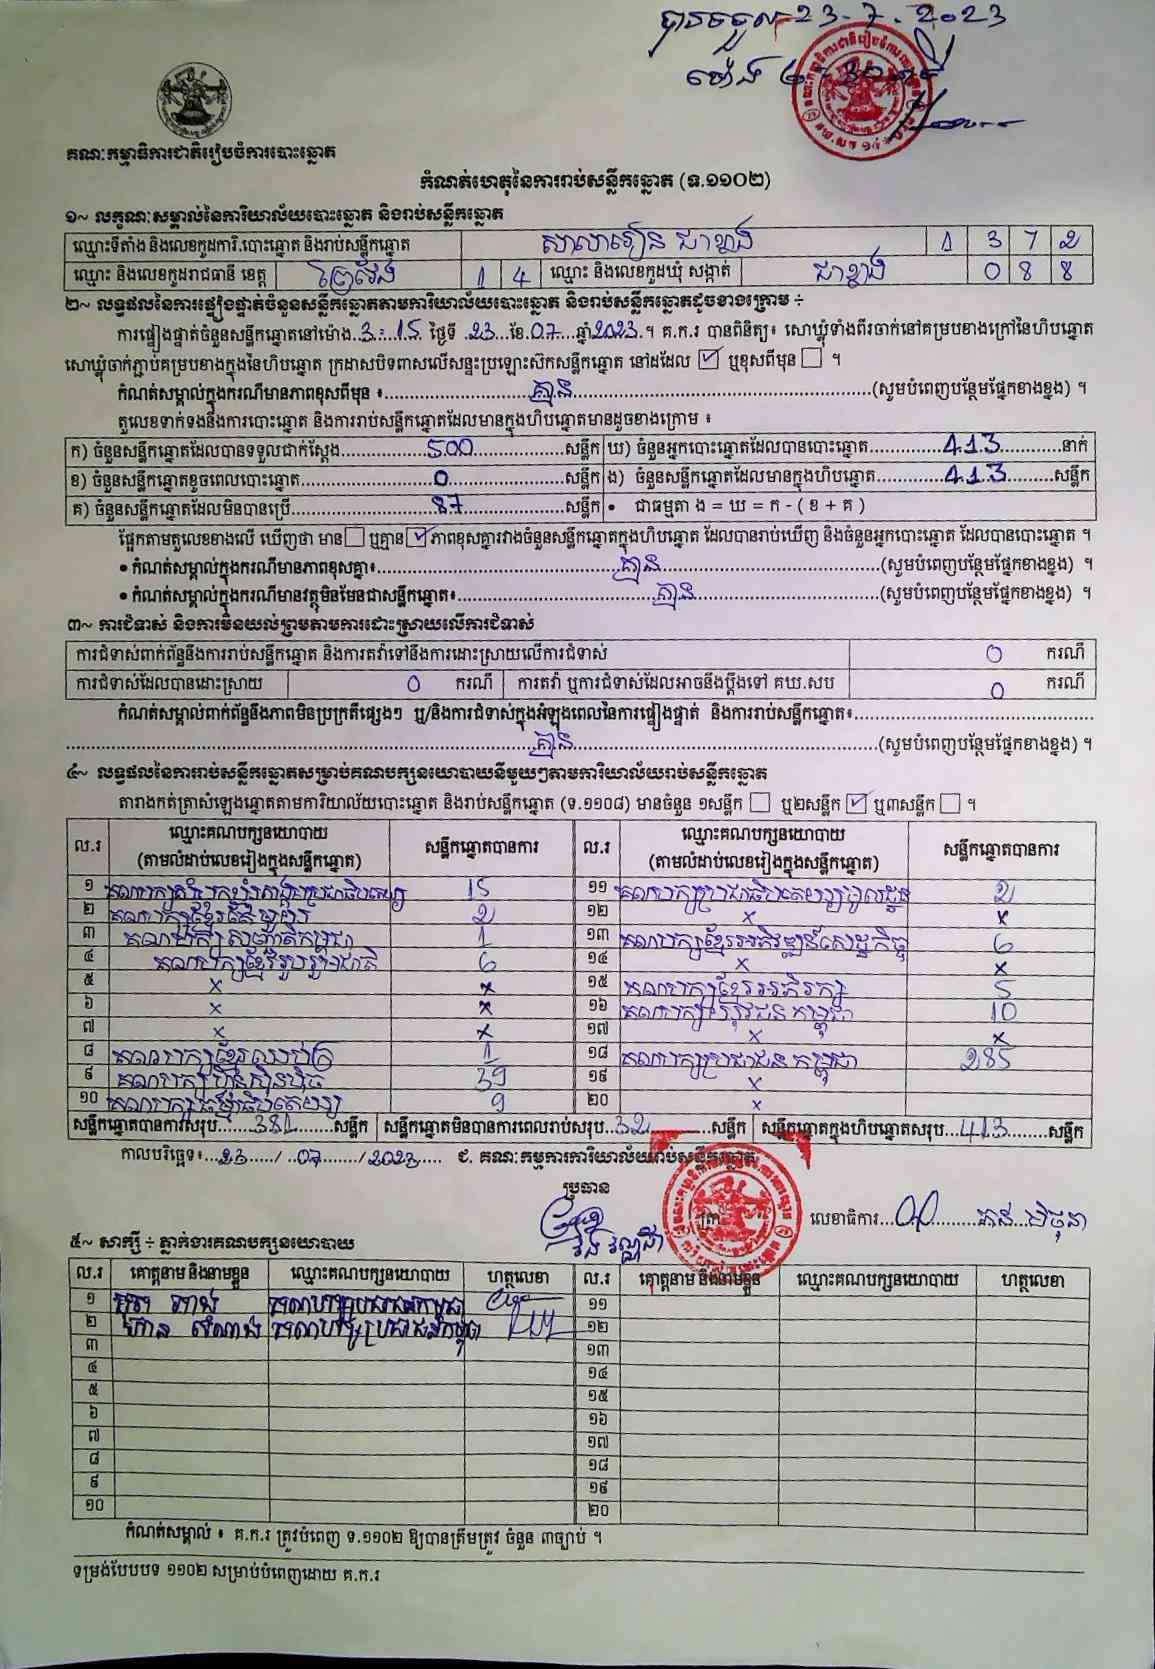 បានទទួល 23-7-2023
ម៉ោង
គណៈកម្មាធិការជាតិរៀបចំការបោះឆ្នោត
កំណត់ហេតុនៃការរាប់សន្លឹកឆ្នោត (ទ.១១០២)
១~ លក្ខណៈសម្គាល់នៃការិយាល័យបោះឆ្នោត និងរាប់សន្លឹកឆ្នោត
ឈ្មោះទីតាំង និងលេខកូដការិ.បោះឆ្នោត និងរាប់សន្លឹកឆ្នោត សាលារៀន ជាខ្លាង 1 3 7 2
ឈ្មោះ និងលេខកូដរាជធានី ខេត្ត ព្រៃវែង 1 4 ឈ្មោះ និងលេខកូដឃុំ សង្កាត់ ជាខ្លាង 0 8 8
២~ លទ្ធផលនៃការផ្ទៀងផ្ទាត់ចំនួនសន្លឹកឆ្នោតតាមការិយាល័យបោះឆ្នោត និងរាប់សន្លឹកឆ្នោតដូចខាងក្រោម ÷
ការផ្ទៀងផ្ទាត់ចំនួនសន្លឹកឆ្នោតនៅម៉ោង 3:15 ថ្ងៃទី 23 ខែ 07 ឆ្នាំ 2023 ។ គ.ក.រ បានពិនិត្យ៖ សោឃ្លុំទាំងពីរចាក់នៅគម្របខាងក្រៅនៃហិបឆ្នោត
សោឃ្លុំចាក់ភ្ជាប់គម្របខាងក្នុងនៃហិបឆ្នោត ក្រដាសបិទពាសលើសន្ទះប្រឡោះស៊កសន្លឹកឆ្នោត នៅដដែល ☑ ឬខុសពីមុន ☐ ។
កំណត់សម្គាល់ក្នុងករណីមានភាពខុសពីមុន ៖ គ្មាន (សូមបំពេញបន្ថែមផ្នែកខាងខ្នង) ។
តួលេខទាក់ទងនឹងការបោះឆ្នោត និងការរាប់សន្លឹកឆ្នោតដែលមានក្នុងហិបឆ្នោតមានដូចខាងក្រោម ៖
ក) ចំនួនសន្លឹកឆ្នោតដែលបានទទួលជាក់ស្តែង 500 សន្លឹក ឃ) ចំនួនអ្នកបោះឆ្នោតដែលបានបោះឆ្នោត 413 នាក់
ខ) ចំនួនសន្លឹកឆ្នោតខូចពេលបោះឆ្នោត 0 សន្លឹក ង) ចំនួនសន្លឹកឆ្នោតដែលមានក្នុងហិបឆ្នោត 413 សន្លឹក
គ) ចំនួនសន្លឹកឆ្នោតដែលមិនបានប្រើ 87 សន្លឹក • ជាធម្មតា ង = ឃ = ក - ( ខ + គ )
ផ្អែកតាមតួលេខខាងលើ ឃើញថា មាន ☐ ឬគ្មាន ☑ ភាពខុសគ្នារវាងចំនួនសន្លឹកឆ្នោតក្នុងហិបឆ្នោត ដែលបានរាប់ឃើញ និងចំនួនអ្នកបោះឆ្នោត ដែលបានបោះឆ្នោត ។
• កំណត់សម្គាល់ក្នុងករណីមានភាពខុសគ្នា៖ គ្មាន (សូមបំពេញបន្ថែមផ្នែកខាងខ្នង) ។
• កំណត់សម្គាល់ក្នុងករណីមានវត្ថុមិនមែនជាសន្លឹកឆ្នោត៖ គ្មាន (សូមបំពេញបន្ថែមផ្នែកខាងខ្នង) ។
៣~ ការជំទាស់ និងការមិនយល់ព្រមតាមការដោះស្រាយលើការជំទាស់
ការជំទាស់ពាក់ព័ន្ធនឹងការរាប់សន្លឹកឆ្នោត និងការតវ៉ាទៅនឹងការដោះស្រាយលើការជំទាស់ 0 ករណី
ការជំទាស់ដែលបានដោះស្រាយ 0 ករណី ការតវ៉ា ឬការជំទាស់ដែលអាចនឹងប្តឹងទៅ គឃ.សប 0 ករណី
កំណត់សម្គាល់ពាក់ព័ន្ធនឹងភាពមិនប្រក្រតីផ្សេងៗ ឬ/និងការជំទាស់ក្នុងអំឡុងពេលនៃការផ្ទៀងផ្ទាត់ និងការរាប់សន្លឹកឆ្នោត៖
គ្មាន (សូមបំពេញបន្ថែមផ្នែកខាងខ្នង) ។
៤~ លទ្ធផលនៃការរាប់សន្លឹកឆ្នោតសម្រាប់គណបក្សនយោបាយនីមួយៗតាមការិយាល័យរាប់សន្លឹកឆ្នោត
តារាងកត់ត្រាសំឡេងឆ្នោតតាមការិយាល័យបោះឆ្នោត និងរាប់សន្លឹកឆ្នោត (ទ.១១០៨) មានចំនួន ១សន្លឹក ☐ ឬ២សន្លឹក ☑ ឬ៣សន្លឹក ☐ ។
ល.រ ឈ្មោះគណបក្សនយោបាយ (តាមលំដាប់លេខរៀងក្នុងសន្លឹកឆ្នោត) សន្លឹកឆ្នោតបានការ ល.រ ឈ្មោះគណបក្សនយោបាយ (តាមលំដាប់លេខរៀងក្នុងសន្លឹកឆ្នោត) សន្លឹកឆ្នោតបានការ
១ គណបក្សសំបុកឃ្មុំសង្គមប្រជាធិបតេយ្យ 15 ១១ គណបក្សប្រជាធិបតេយ្យមូលដ្ឋាន 2
២ គណបក្សខ្មែរតែមួយ 2 ១២ x x
៣ គណបក្សសញ្ជាតិកម្ពុជា 1 ១៣ គណបក្សខ្មែរអភិវឌ្ឍន៍សេដ្ឋកិច្ច 6
៤ គណបក្សខ្មែររួបរួមជាតិ 6 ១៤ x x
៥ x x ១៥ គណបក្សខ្មែរអភិរក្ស 5
៦ x x ១៦ គណបក្សយុវជនកម្ពុជា 10
៧ x x ១៧ x x
៨ គណបក្សខ្មែរឈប់ក្រ 1 ១៨ គណបក្សប្រជាជនកម្ពុជា 285
៩ គណបក្សហ៊្វុនស៊ិនប៉ិច 39 ១៩ x
១០ គណបក្សធម្មាធិបតេយ្យ 9 ២០ x
សន្លឹកឆ្នោតបានការសរុប 381 សន្លឹក សន្លឹកឆ្នោតមិនបានការពេលរាប់សរុប 32 សន្លឹក សន្លឹកឆ្នោតក្នុងហិបឆ្នោតសរុប 413 សន្លឹក
កាលបរិច្ឆេទ៖ 23 / 07 / 2023 ជ. គណៈកម្មការការិយាល័យរាប់សន្លឹកឆ្នោត
ប្រធាន
ត្រា លេខាធិការ
៥~ សាក្សី ÷ ភ្នាក់ងារគណបក្សនយោបាយ
ល.រ គោត្តនាម និងនាមខ្លួន ឈ្មោះគណបក្សនយោបាយ ហត្ថលេខា ល.រ គោត្តនាម និងនាមខ្លួន ឈ្មោះគណបក្សនយោបាយ ហត្ថលេខា
១ គណបក្សប្រជាជនកម្ពុជា ១១
២ គណបក្សប្រជាជនកម្ពុជា ១២
៣ ១៣
៤ ១៤
៥ ១៥
៦ ១៦
៧ ១៧
៨ ១៨
៩ ១៩
១០ ២០
កំណត់សម្គាល់ ៖ គ.ក.រ ត្រូវបំពេញ ទ.១១០២ ឱ្យបានត្រឹមត្រូវ ចំនួន ៣ច្បាប់ ។
ទម្រង់បែបបទ ១១០២ សម្រាប់បំពេញដោយ គ.ក.រ